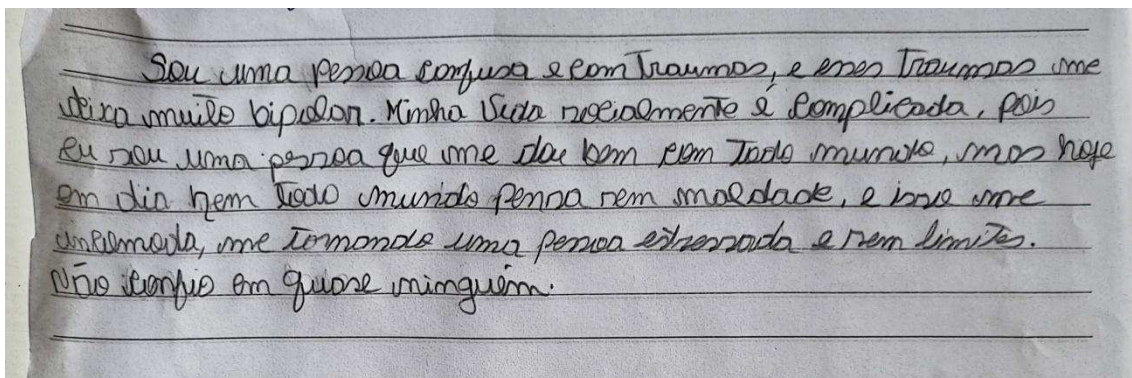 Sou uma pessoa confusa e com Traumas, e esses Traumas me
deixa muito bipolar. Minha Vida socialmente é complicada, pois
eu sou uma pessoa que me dou bem com Todo mundo, mas hoje
em dia nem Todo mundo pensa sem maldade, e isso me
incomoda, me tornando uma pessoa estressada e sem limites.
Não confio em quase ninguém.